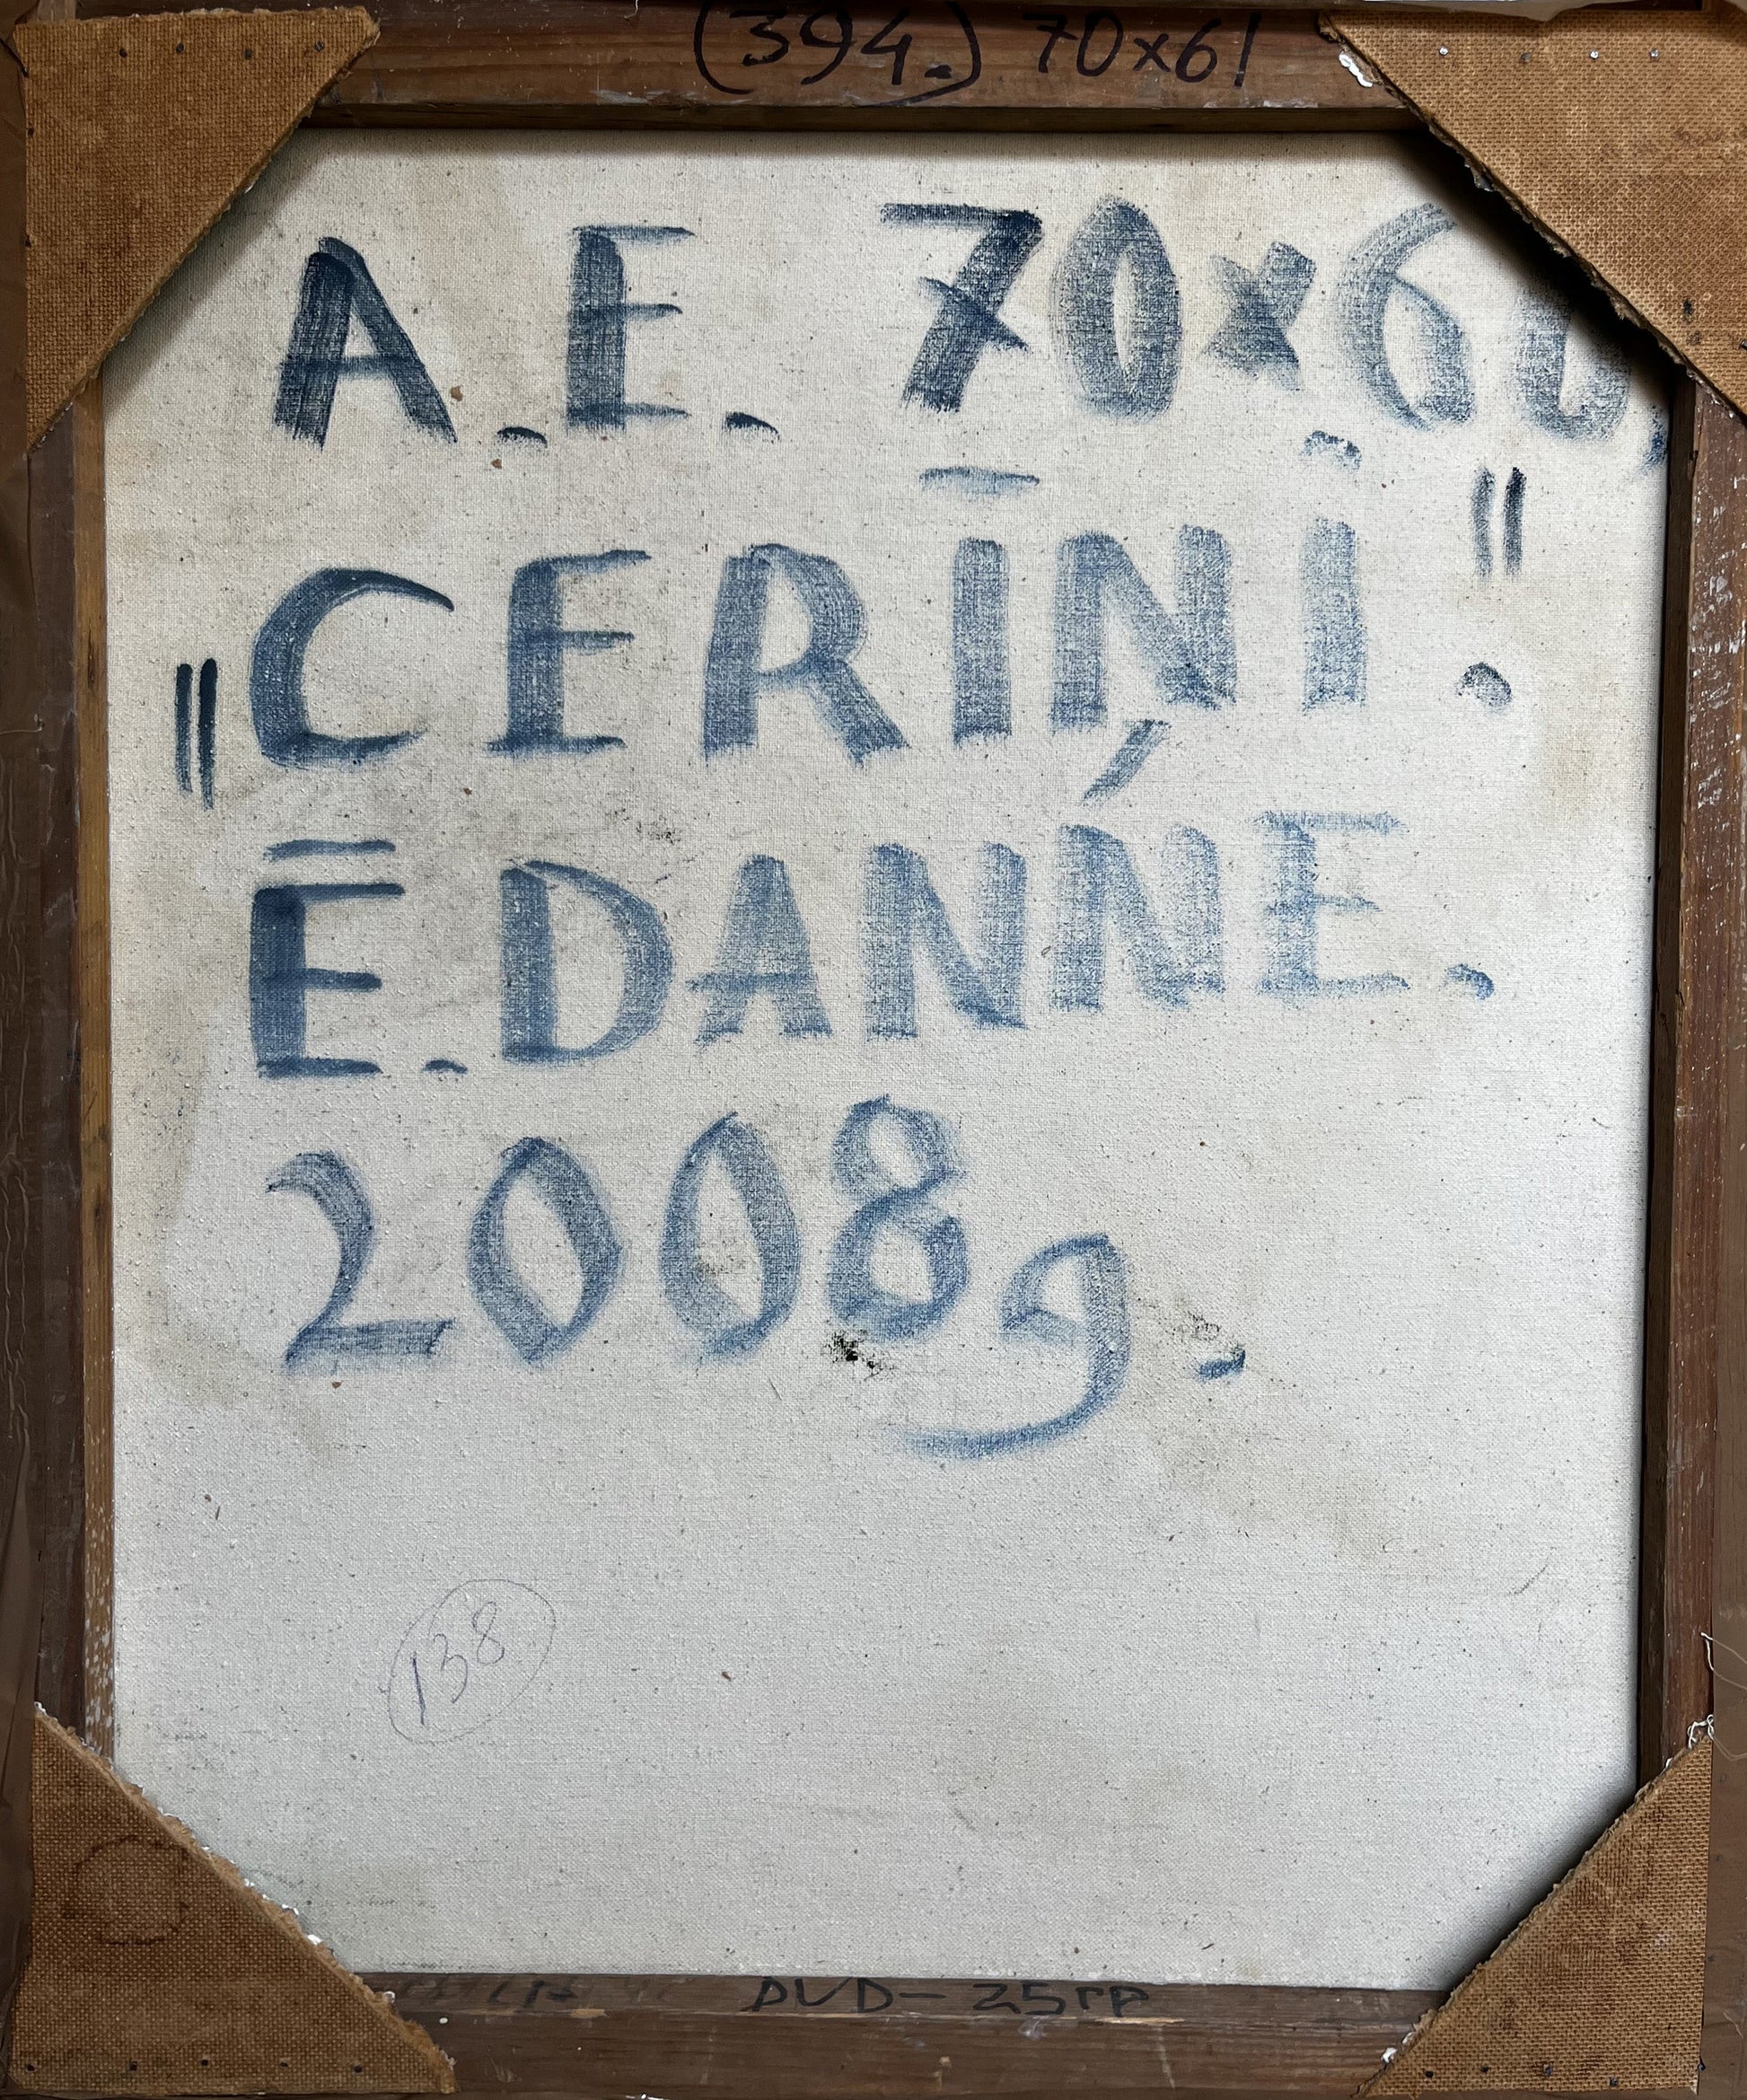 (394.) 70x61
A.E. 70x60.
"CERĪŅI."
Ē.DANŅE.
2008g.
138
DVD-